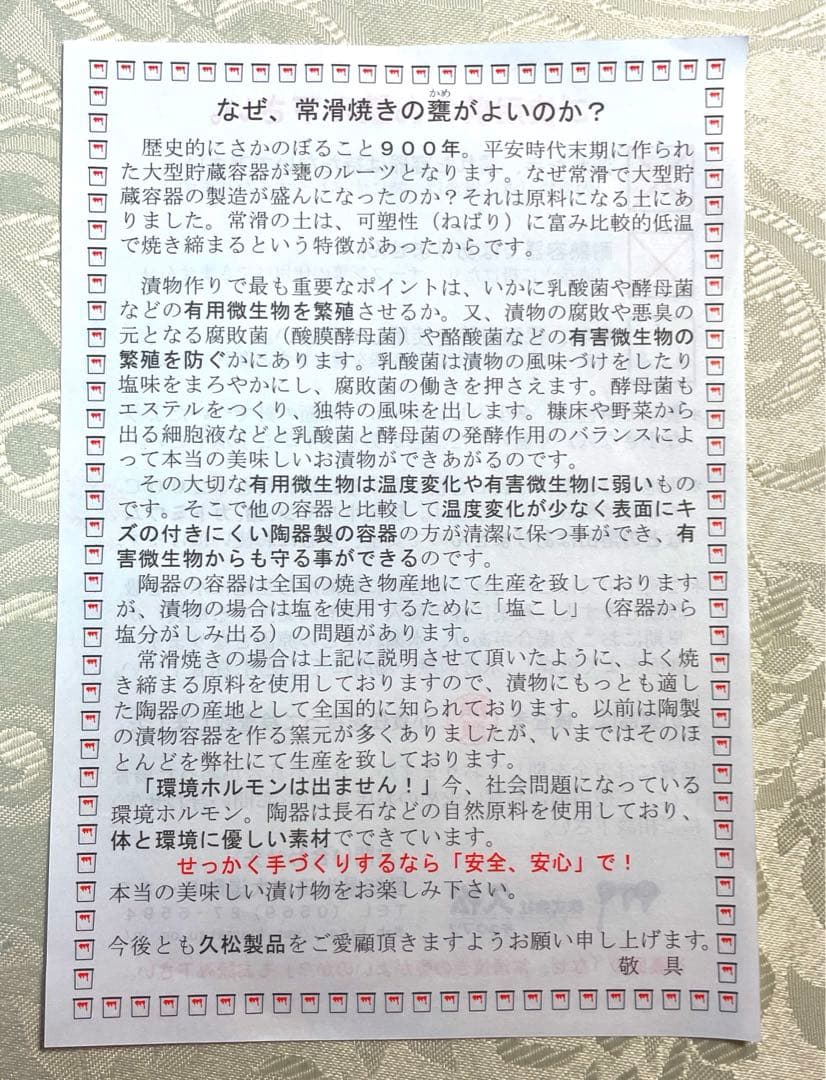 なぜ、常滑焼きの甕がよいのか？
かめ
歴史的にさかのぼること９００年。平安時代末期に作られ
た大型貯蔵容器が甕のルーツとなります。なぜ常滑で大型貯
蔵容器の製造が盛んになったのか？それは原料になる土にあ
りました。常滑の土は、可塑性（ねばり）に富み比較的低温
で焼き締まるという特徴があったからです。
漬物作りで最も重要なポイントは、いかに乳酸菌や酵母菌
などの有用微生物を繁殖させるか。又、漬物の腐敗や悪臭の
元となる腐敗菌（酸膜酵母菌）や酪酸菌などの有害微生物の
繁殖を防ぐかにあります。乳酸菌は漬物の風味づけをしたり
塩味をまろやかにし、腐敗菌の働きを押さえます。酵母菌も
エステルをつくり、独特の風味を出します。糠床や野菜から
出る細胞液などと乳酸菌と酵母菌の発酵作用のバランスによ
って本当の美味しいお漬物ができあがるのです。
その大切な有用微生物は温度変化や有害微生物に弱いもの
です。そこで他の容器と比較して温度変化が少なく表面にキ
ズの付きにくい陶器製の容器の方が清潔に保つ事ができ、有
害微生物からも守る事ができるのです。
陶器の容器は全国の焼き物産地にて生産を致しております
が、漬物の場合は塩を使用するために「塩こし」（容器から
塩分がしみ出る）の問題があります。
常滑焼きの場合は上記に説明させて頂いたように、よく焼
き締まる原料を使用しておりますので、漬物にもっとも適し
た陶器の産地として全国的に知られております。以前は陶製
の漬物容器を作る窯元が多くありましたが、いまではそのほ
とんどを弊社にて生産を致しております。
「環境ホルモンは出ません！」今、社会問題になっている
環境ホルモン。陶器は長石などの自然原料を使用しており、
体と環境に優しい素材でできています。
せっかく手づくりするなら「安全、安心」で！
本当の美味しい漬け物をお楽しみ下さい。
今後とも久松製品をご愛顧頂きますようお願い申し上げます。
敬　具